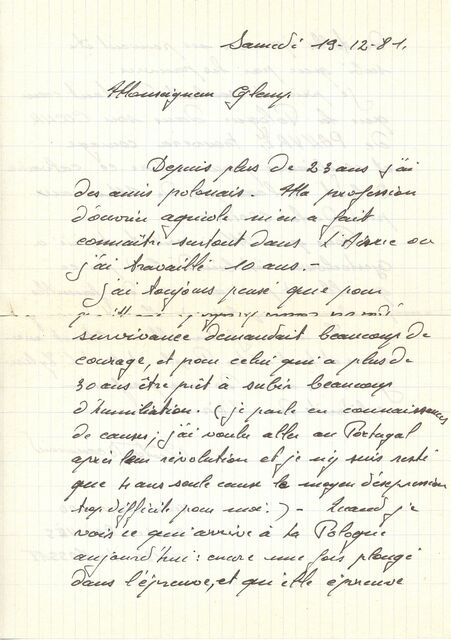 Samedi 19-12-81.
Monseigneur Glemp.
Depuis plus de 23 ans j'ai
des amis polonais. Ma profession
d'ouvrier agricole m'en a fait
connaître surtout dans l'Aisne ou
j'ai travaillé 10 ans.-
j'ai toujours pensé que pour
survivance demandait beaucoup de
courage, et pour celui qui a plus de
30 ans être prêt à subir beaucoup
d'humiliation. (je parle en connaissance
de cause; j'ai voulu aller au Portugal
après leur révolution et je n'y suis resté
que 4 ans seule cause le moyen d'expression
trop difficile pour moi.) - Quand je
vois ce qui arrive à la Pologne
aujourd'hui: encore une fois plongé
dans l'épreuve, et quelle épreuve